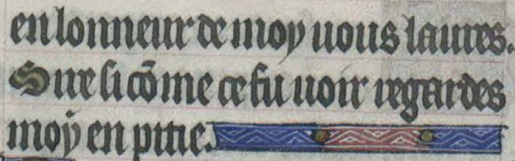 en lonneur de moy uous laures.
Sire si cõme ce fu uoir regardes
moy en pitie.